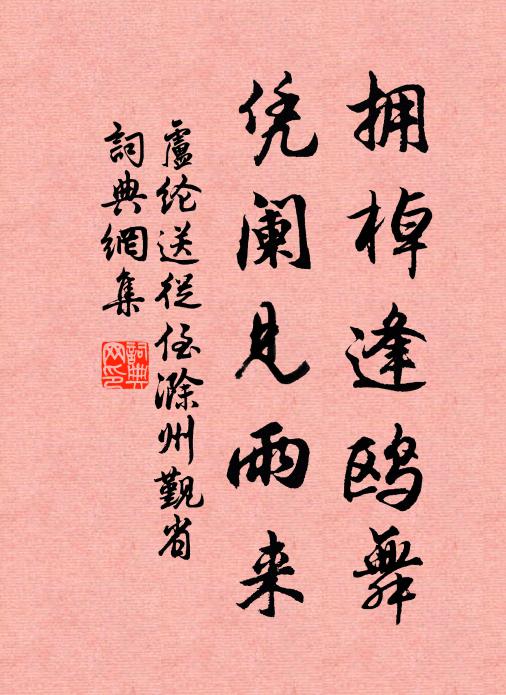 拥棹逢鸥舞
凭阑见雨来
盧纶送從侄滁州觐省
詞典網集
詞典網印